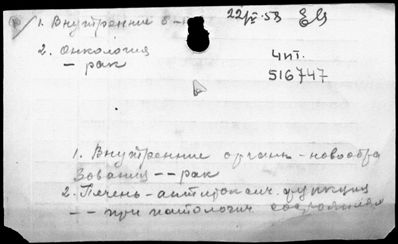 1. Внутренние б-ни 22/IX.58
2. Онкология
— рак
Чит.
516747
1. Внутренние органы - новообра
зования -- рак
2. Печень - антитоксич. функция
-- при патологич. состояниях